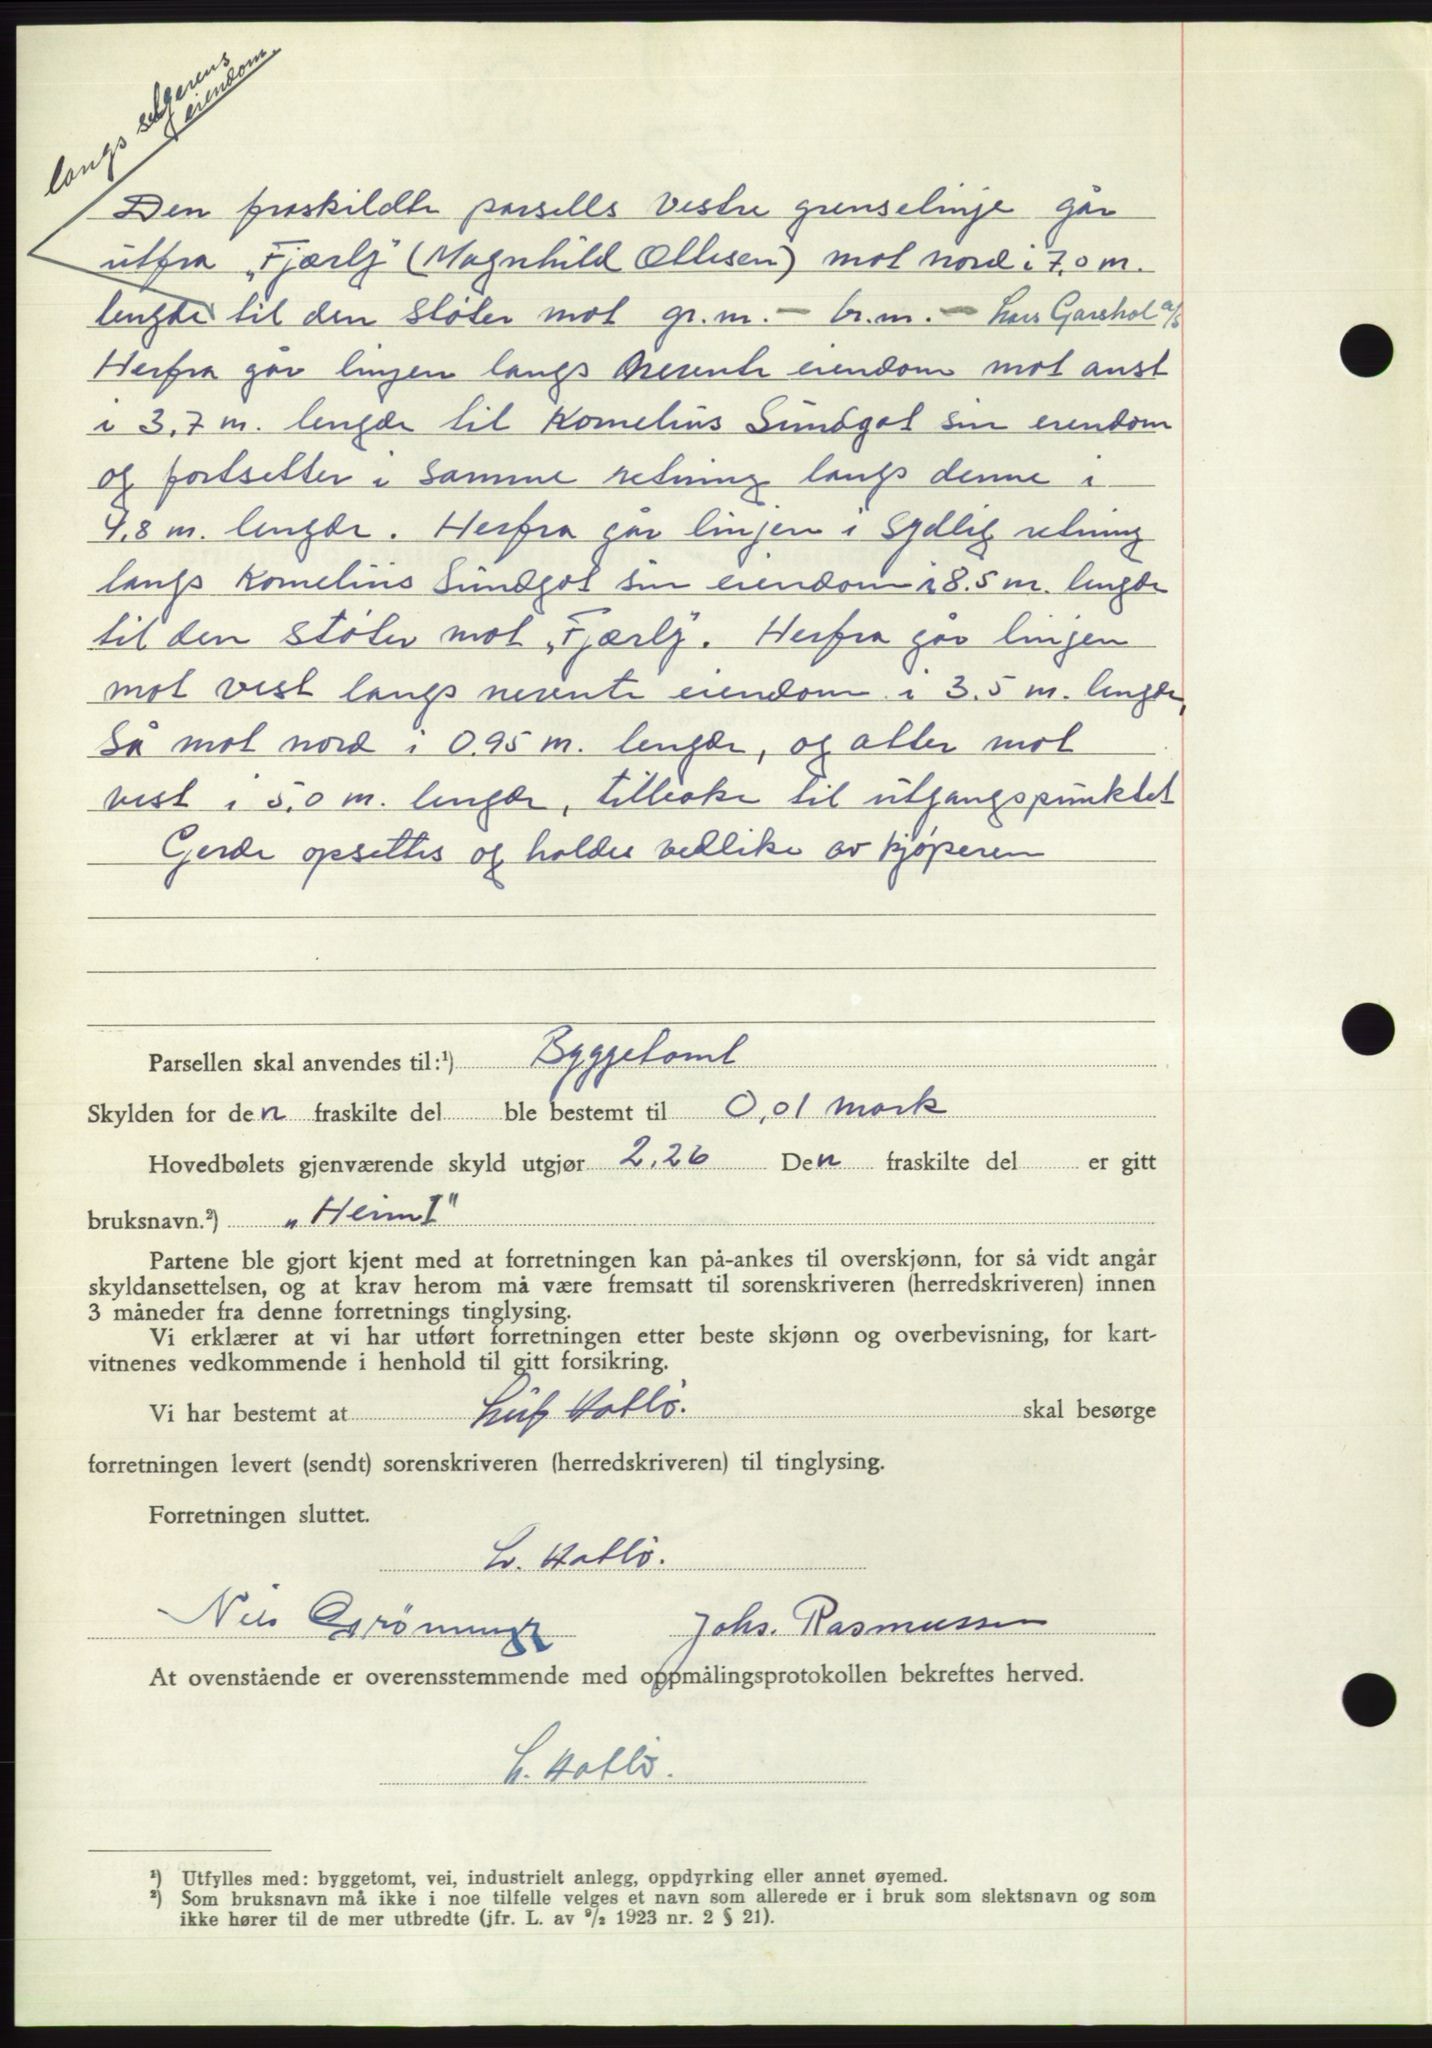 langs selgerens
eiendom.
Den fraskildte parsells vestre grenselinje går
utfra „Fjærly" (Magnhild Ollesen) mot nord i 7,0 m.
lengde til den støter mot gr.m. — br.m. — Lars Garshol a/s
Herfra går linjen langs nevente eiendom mot aust
i 3,7 m. lengde til Kornelius Sundgot sin eiendom
og fortsetter i samme retning langs denne i
4,8 m. lengde. Herfra går linjen i sydlig retning
langs Kornelius Sundgot sin eiendom i 8.5 m. lengde
til den støter mot „Fjærly". Herfra går linjen
mot vest langs nevente eiendom i 3.5 m. lengde,
så mot nord i 0.95 m. lengde, og atter mot
vest i 5,0 m. lengde, tilbake til utgangspunktet
Gjerde opsettes og holdes vedlike av kjøperen
Parsellen skal anvendes til:¹) Byggetomt
Skylden for den fraskilte del ble bestemt til 0,01 mark
Hovedbølets gjenværende skyld utgjør 2,26 Den fraskilte del er gitt
bruksnavn.²) „Heim I"
Partene ble gjort kjent med at forretningen kan på-ankes til overskjønn, for så vidt angår
skyldansettelsen, og at krav herom må være fremsatt til sorenskriveren (herredskriveren) innen
3 måneder fra denne forretnings tinglysing.
Vi erklærer at vi har utført forretningen etter beste skjønn og overbevisning, for kart-
vitnenes vedkommende i henhold til gitt forsikring.
Vi har bestemt at Leif Hatlø. skal besørge
forretningen levert (sendt) sorenskriveren (herredskriveren) til tinglysing.
Forretningen sluttet.
L. Hatlø.
Nils Grönningz Johs. Rasmussen
At ovenstående er overensstemmende med oppmålingsprotokollen bekreftes herved.
L. Hatlø.
¹) Utfylles med: byggetomt, vei, industrielt anlegg, oppdyrking eller annet øyemed.
²) Som bruksnavn må ikke i noe tilfelle velges et navn som allerede er i bruk som slektsnavn og som
ikke hører til de mer utbredte (jfr. L. av ⁹/₂ 1923 nr. 2 § 21).